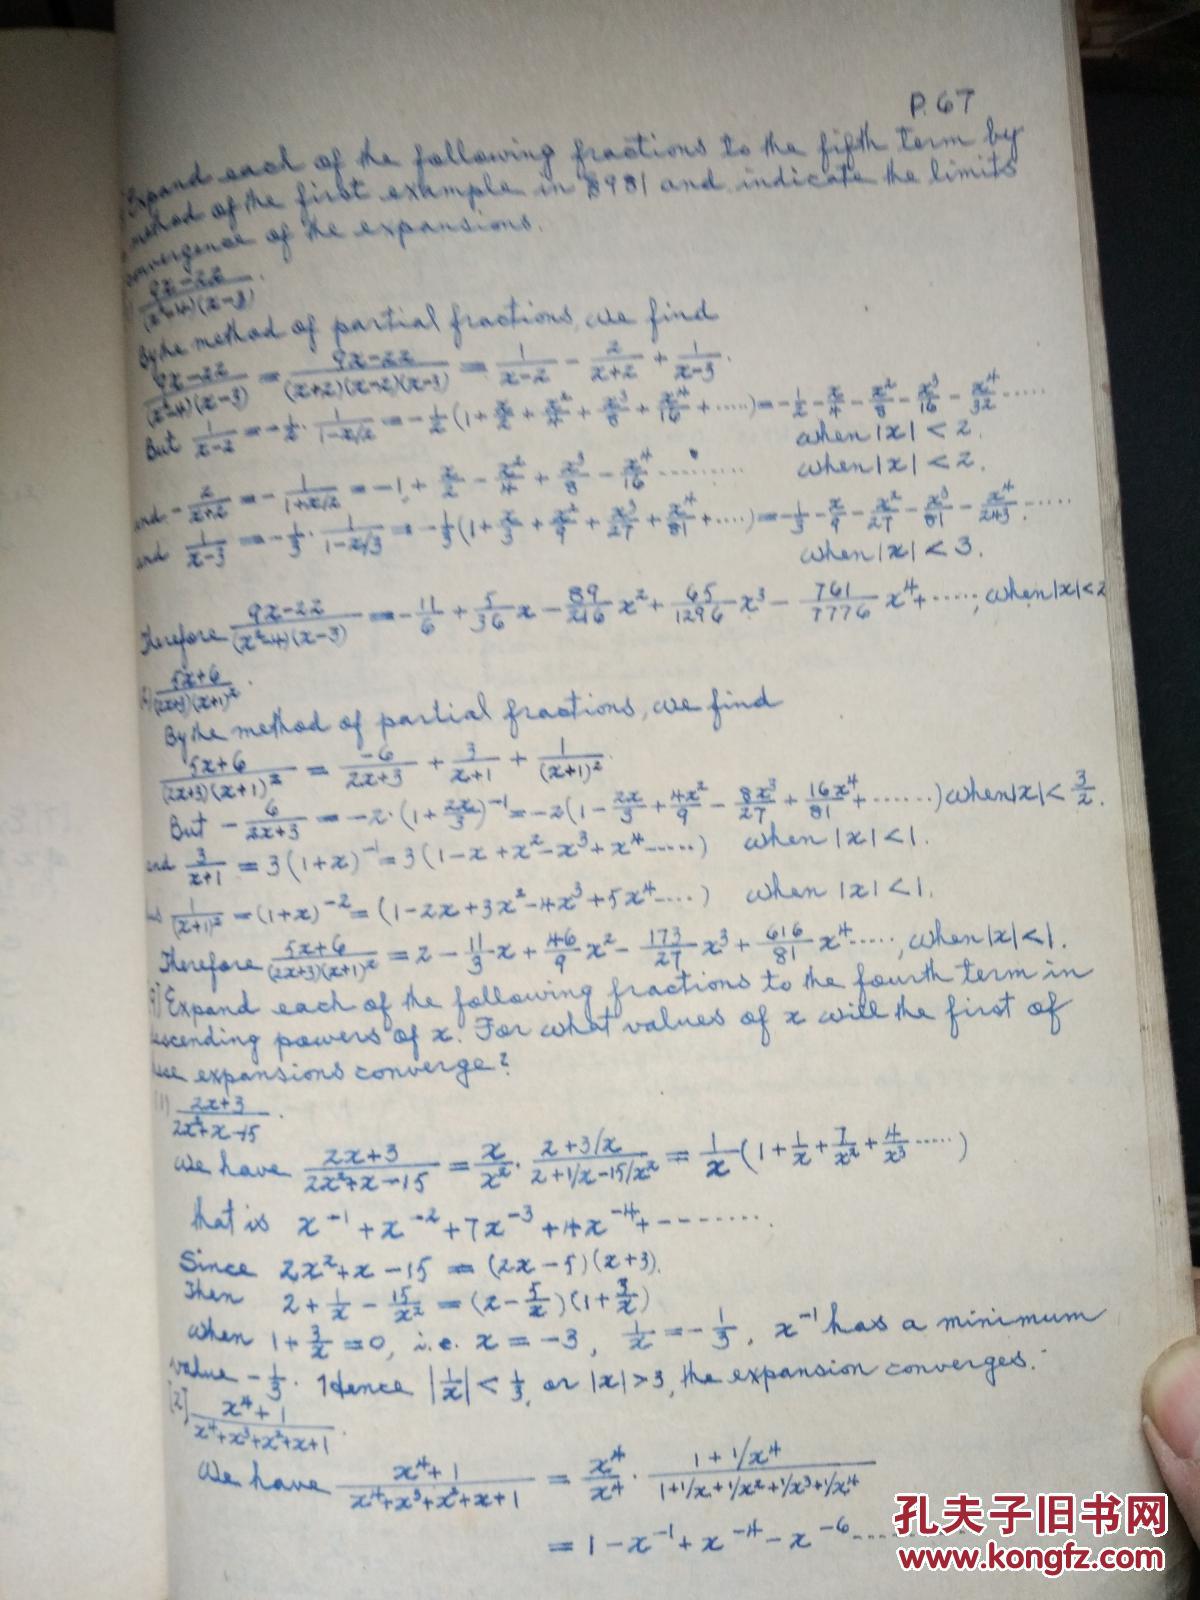 P. 67
Expand each of the following fractions to the fifth term by
method of the first example in §981 and indicate the limits
convergence of the expansions.
(9x-22)/((x²-4)(x-3)).
By the method of partial fractions, we find
(9x-22)/((x²-4)(x-3)) = (9x-22)/((x+2)(x-2)(x-3)) = 1/(x-2) - 2/(x+2) + 1/(x-3).
But 1/(x-2) = -1/2 · 1/(1-x/2) = -1/2(1 + x/2 + x²/4 + x³/8 + x⁴/16 + ·····) = -1/2 - x/4 - x²/8 - x³/16 - x⁴/32 ·····
when |x| < 2.
and -2/(x+2) = -1/(1+x/2) = -1 + x/2 - x²/4 + x³/8 - x⁴/16 ········· when |x| < 2.
and 1/(x-3) = -1/3 · 1/(1-x/3) = -1/3(1 + x/3 + x²/9 + x³/27 + x⁴/81 + ····) = -1/3 - x/9 - x²/27 - x³/81 - x⁴/243 ·····
when |x| < 3.
Therefore (9x-22)/((x²-4)(x-3)) = -11/6 + 5/36 x - 89/216 x² + 65/1296 x³ - 761/7776 x⁴ + ·····, when |x| < 2
(2) (5x+6)/((2x+3)(x+1)²).
By the method of partial fractions, we find
(5x+6)/((2x+3)(x+1)²) = -6/(2x+3) + 3/(x+1) + 1/(x+1)².
But -6/(2x+3) = -2·(1 + 2x/3)⁻¹ = -2(1 - 2x/3 + 4x²/9 - 8x³/27 + 16x⁴/81 + ······) when |x| < 3/2.
and 3/(x+1) = 3(1+x)⁻¹ = 3(1 - x + x² - x³ + x⁴ ·····) when |x| < 1.
1/(x+1)² = (1+x)⁻² = (1 - 2x + 3x² - 4x³ + 5x⁴ ····) when |x| < 1.
Therefore (5x+6)/((2x+3)(x+1)²) = 2 - 11/3 x + 46/9 x² - 173/27 x³ + 616/81 x⁴ ·····, when |x| < 1.
9] Expand each of the following fractions to the fourth term in
descending powers of x. For what values of x will the first of
these expansions converge?
(1) (2x+3)/(2x²+x-15).
We have (2x+3)/(2x²+x-15) = x/x² · (2+3/x)/(2+1/x-15/x²) = 1/x (1 + 1/x + 7/x² + 4/x³ ·····)
that is x⁻¹ + x⁻² + 7x⁻³ + 4x⁻⁴ + ········.
Since 2x²+x-15 = (2x-5)(x+3).
Then 2 + 1/x - 15/x² = (2 - 5/x)(1 + 3/x)
When 1 + 3/x = 0, i.e. x = -3, 1/x = -1/3, x⁻¹ has a minimum
value -1/3. Hence |1/x| < 1/3, or |x| > 3, the expansion converges.
[2] (x⁴+1)/(x⁴+x³+x²+x+1).
We have (x⁴+1)/(x⁴+x³+x²+x+1) = x⁴/x⁴ · (1+1/x⁴)/(1+1/x+1/x²+1/x³+1/x⁴)
= 1 - x⁻¹ + x⁻⁴ - x⁻⁶ ······
孔夫子旧书网
www.kongfz.com